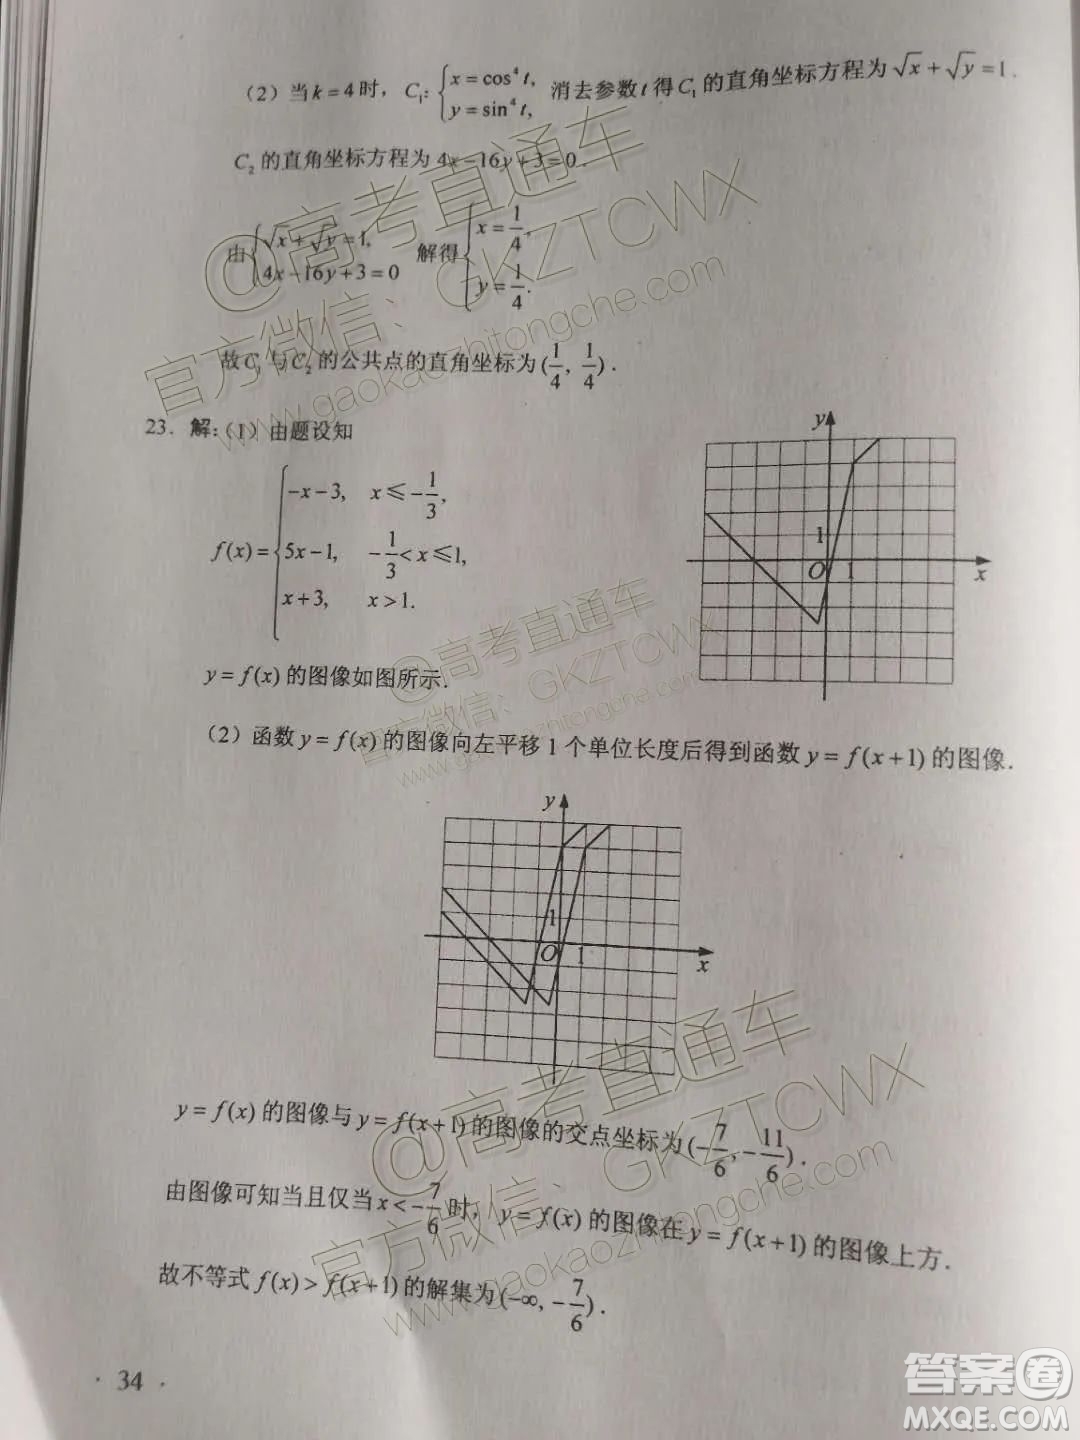 (2) 当 k = 4 时, C₁: { x = cos⁴ t, y = sin⁴ t, 消去参数 t 得 C₁ 的直角坐标方程为 √x + √y = 1.
C₂ 的直角坐标方程为 4x − 16y + 3 = 0.
由 { √x + √y = 1, 4x − 16y + 3 = 0 解得 { x = 1/4, y = 1/4.
故 C₁ 与 C₂ 的公共点的直角坐标为 (1/4, 1/4).
23. 解: (1) 由题设知
f(x) = { −x − 3, x ⩽ −1/3,
5x − 1, −1/3 < x ⩽ 1,
x + 3, x > 1.
y
1
O 1
x
y = f(x) 的图像如图所示.
(2) 函数 y = f(x) 的图像向左平移 1 个单位长度后得到函数 y = f(x + 1) 的图像.
y
1
O 1
x
y = f(x) 的图像与 y = f(x + 1) 的图像的交点坐标为 (−7/6, −11/6).
由图像可知当且仅当 x < −7/6 时, y = f(x) 的图像在 y = f(x + 1) 的图像上方.
故不等式 f(x) > f(x + 1) 的解集为 (−∞, −7/6).
· 34 ·
@高考直通车
官方微信、GKZTCWX
www.gaokaozhitongche.com
@高考直通车
官方微信、GKZTCWX
www.gaokaozhitongche.com
@高考直通车
官方微信、GKZTCWX
www.gaokaozhitongche.com
答案圈
MXQE.COM